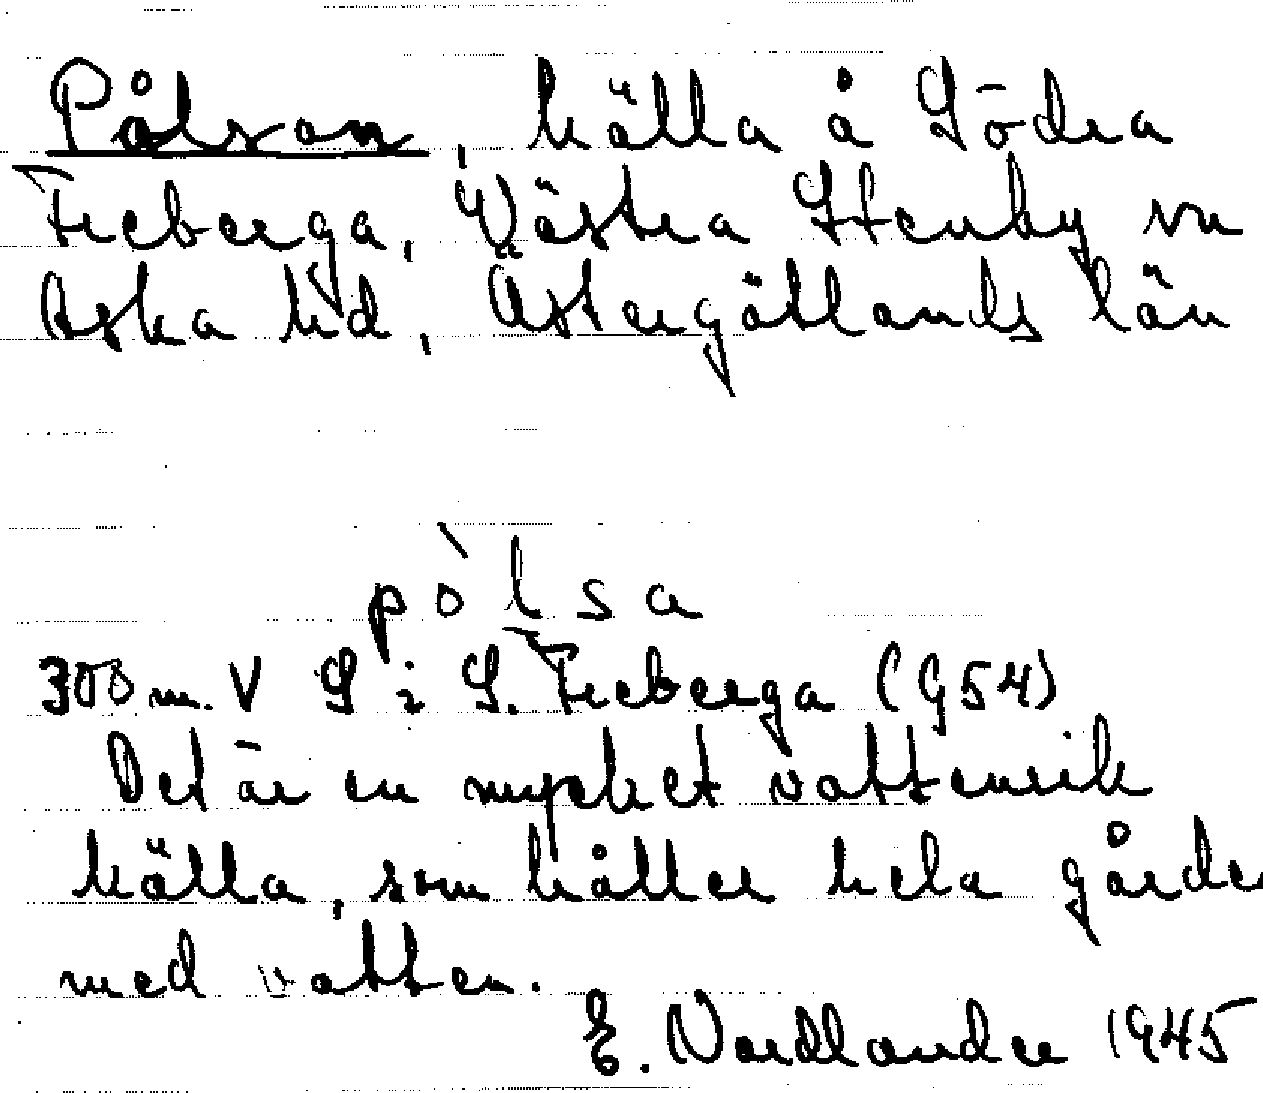 Pålsan, källa å Södra
Freberga, Västra Stenby sn
Aska hd, Östergötlands län
pòlsa
300 m. V S i S. Freberga (954)
Det är en mycket vattenrik
källa, som håller hela gårde
med vatten.
E. Nordlander 1945